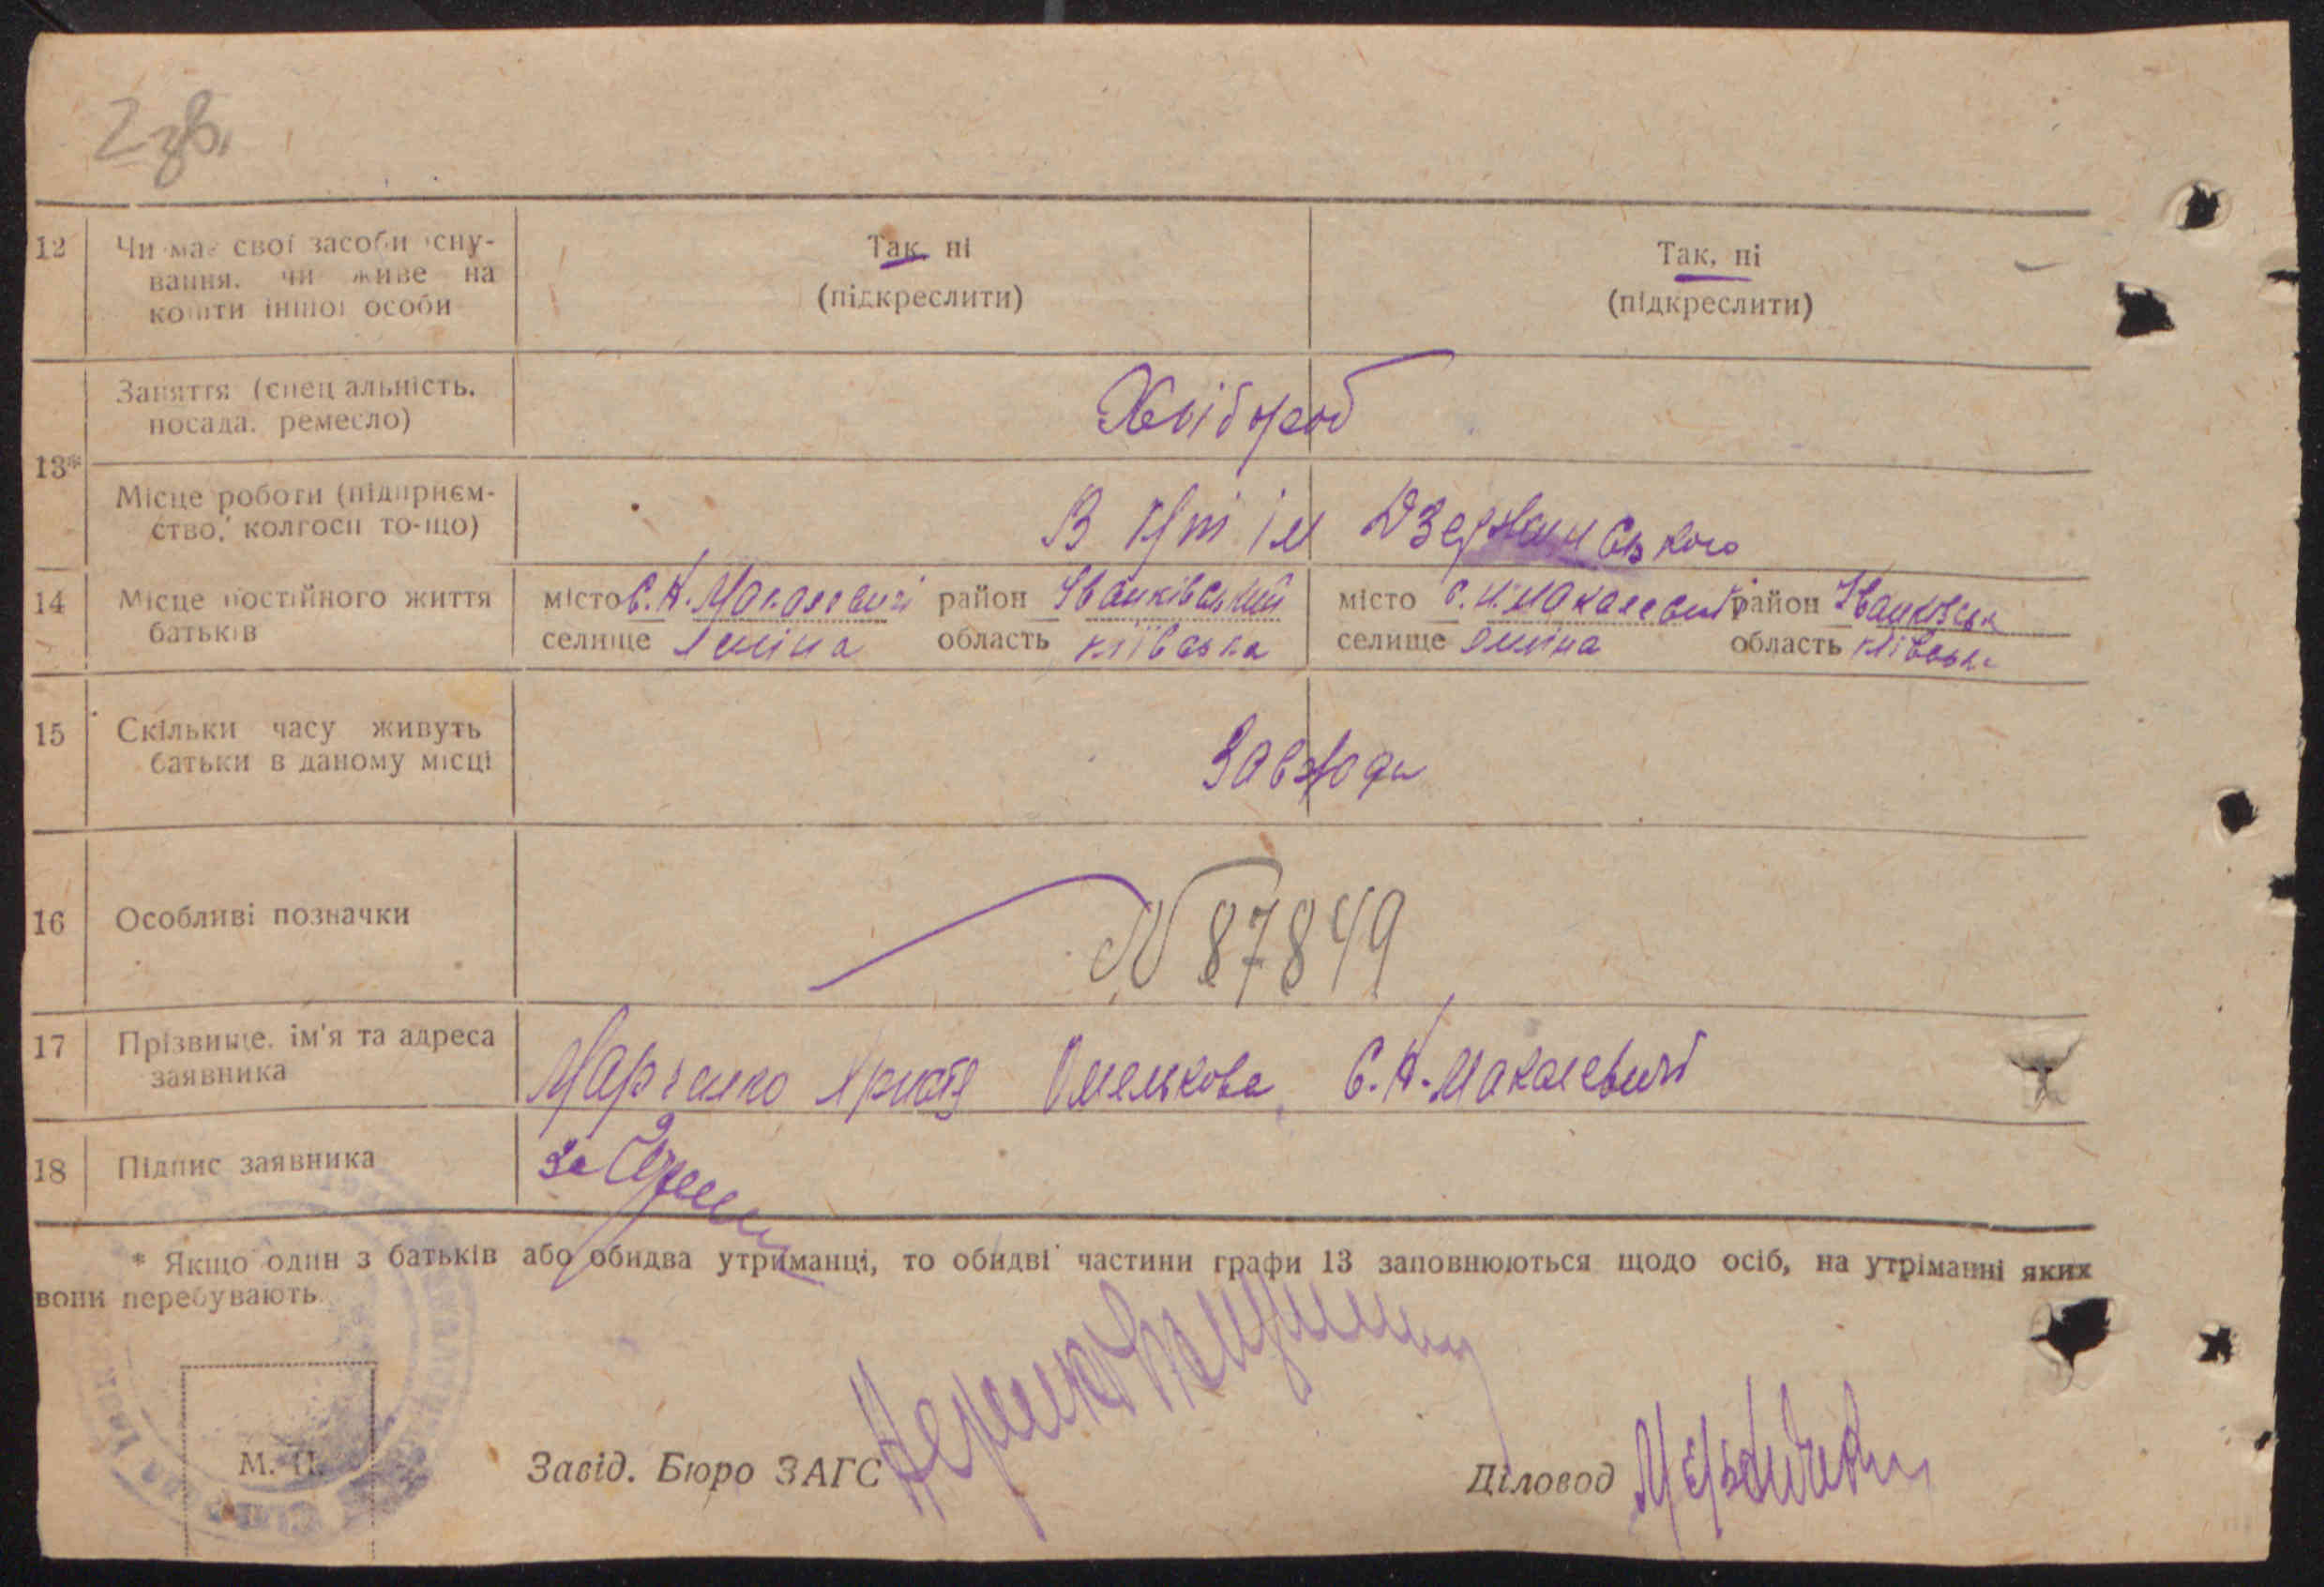 2 зв.
12 Чи має свої засоби існу-
вання, чи живе на
кошти іншої особи
Так, ні
(підкреслити)
Так, ні
(підкреслити)
13*
Заняття (спеціальність,
посада, ремесло)
Хлібороб
Місце роботи (підприєм-
ство, колгосп то-що)
В к/г ім Дзержинського
14 Місце постійного життя
батьків
місто С. Н. Макалевичі район Іванківський
селище область київська
місто С. Н. Макалевичі район Іванківськ
селище область київська
15 Скільки часу живуть
батьки в даному місці
Завжди
16 Особливі позначки
N 87849
17 Прізвище, ім'я та адреса
заявника
Марченко Омелькова, С. Н. Макалевичі
18 Підпис заявника
за
* Якщо один з батьків або обидва утриманці, то обидві частини графи 13 заповнюються щодо осіб, на утріманні яких
вони перебувають
М. П.
Завід. Бюро ЗАГС
Діловод